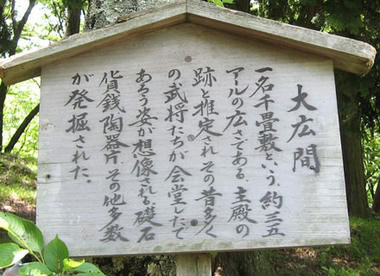 大広間
一名千畳敷という、約三五
アールの広さである。主殿の
跡と推定されその昔多く
の武将たちが会堂したで
あろう姿が想像される。礎石
貨銭、陶器片、その他多数
が発掘された。